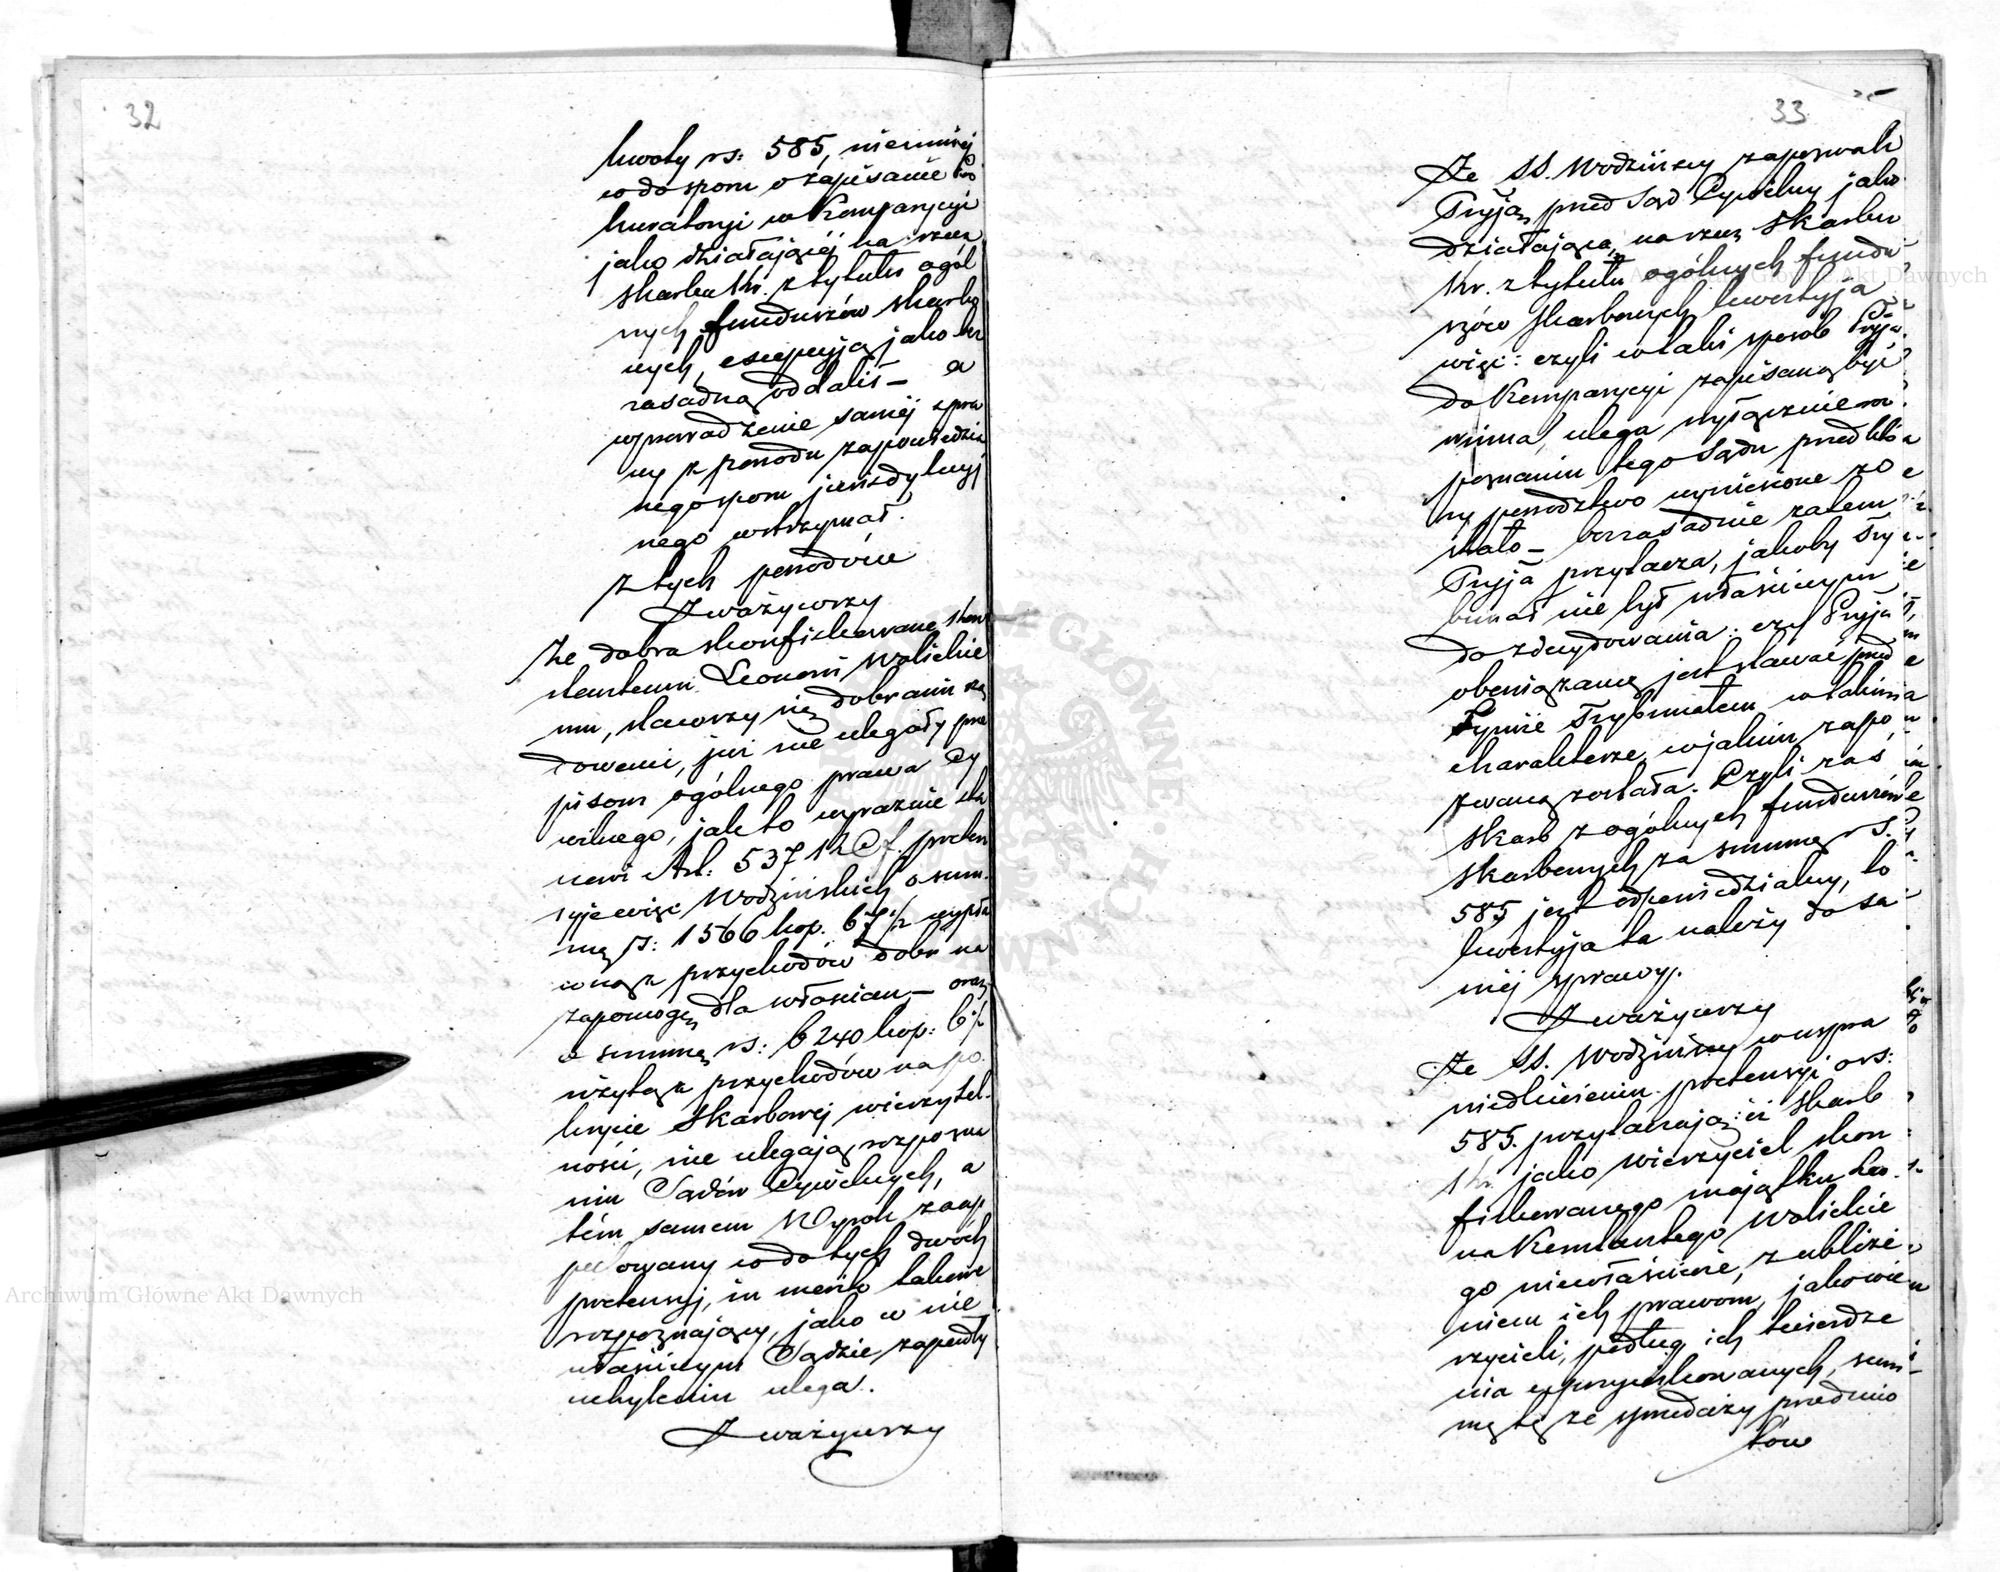 32
kwoty rs: 585, niemniej
co do sporu o zapisanie Pro
kuratoryi w Komparycyi
jako działającéj na rzecz
Skarbu Kr. z tytułu ogól
nych funduszów skarbo
wych, excepcyją jako bez
zasadną oddalił — a
wprowadzenie saméj spra
wy z powodu zapowiedzia
nego sporu jurisdykcyj
nego wstrzymał.
Z tych powodów
Zważywszy
Że dobra skonfiskowane Kon
stantemu Leonowi Wolickie
mu, stawszy się dobrami rzą
dowemi, już nie ulegały prze
pisom ogólnego prawa Cy
wilnego, jak to wyraźnie sta
nowi Art: 537 K.C.f. preten
syje więc Wodzińskich o sum
mę rs: 1566 kop. 67½ wypła
coną z przychodów dobr na
zapomogę dla włościan — oraz
o summę rs: 6240 kop: 6½
użytą z przychodów na po
krycie Skarbowéj wierzytel
ności, nie ulegają rozpozna
niu Sądów Cywilnych, a
tém samem Wyrok zaap
pelowany co do tych dwóch
pretensyj, in merito takowe
rozpoznający, jako w nie
właściwym Sądzie zapadły
uchyleniu ulega.
Zważywszy
33
Że SS. Wodzińscy zapozwali
Pryją przed Sąd Cywilny jako
działającą na rzecz Skarbu
Kr. z tytułu ogólnych fundu
szów skarbowych kwestyja
więc: czyli w taki sposób Pryja
do Komparycyi zapisaną być
winna, ulega wyłącznie roz
poznaniu tego Sądu przed któ
ry powodztwo wyniesione zo
stało — bezzasadnie zatem
Pryja przytacza, jakoby Try
bunał nie był właściwym
do zdecydowania: czy Pryja
obowiązaną jest stawać przed
Tymże Trybunałem w takim
charakterze, w jakim zapo
zwaną została. Czyli zaś
Skarb z ogólnych funduszów
skarbowych za summę rs.
585 jest odpowiedzialny, to
kwestyja ta należy do sa
méj sprawy.
Zważywszy
Że SS. Wodzińscy w uspra
wiedliwieniu pretensyi o rs:
585. przytaczają: iż Skarb
Kr. jako wierzyciel skon
fiskowanego majątku Leo
na Konstantego Wolickie
go niewłaściwie, z ubliże
niem ich prawom, jako wie
rzycieli, podług ich twierdze
nia uprzywilejowanych, sum
mę tę ze sprzedaży przedmio
tów
Archiwum Główne Akt Dawnych